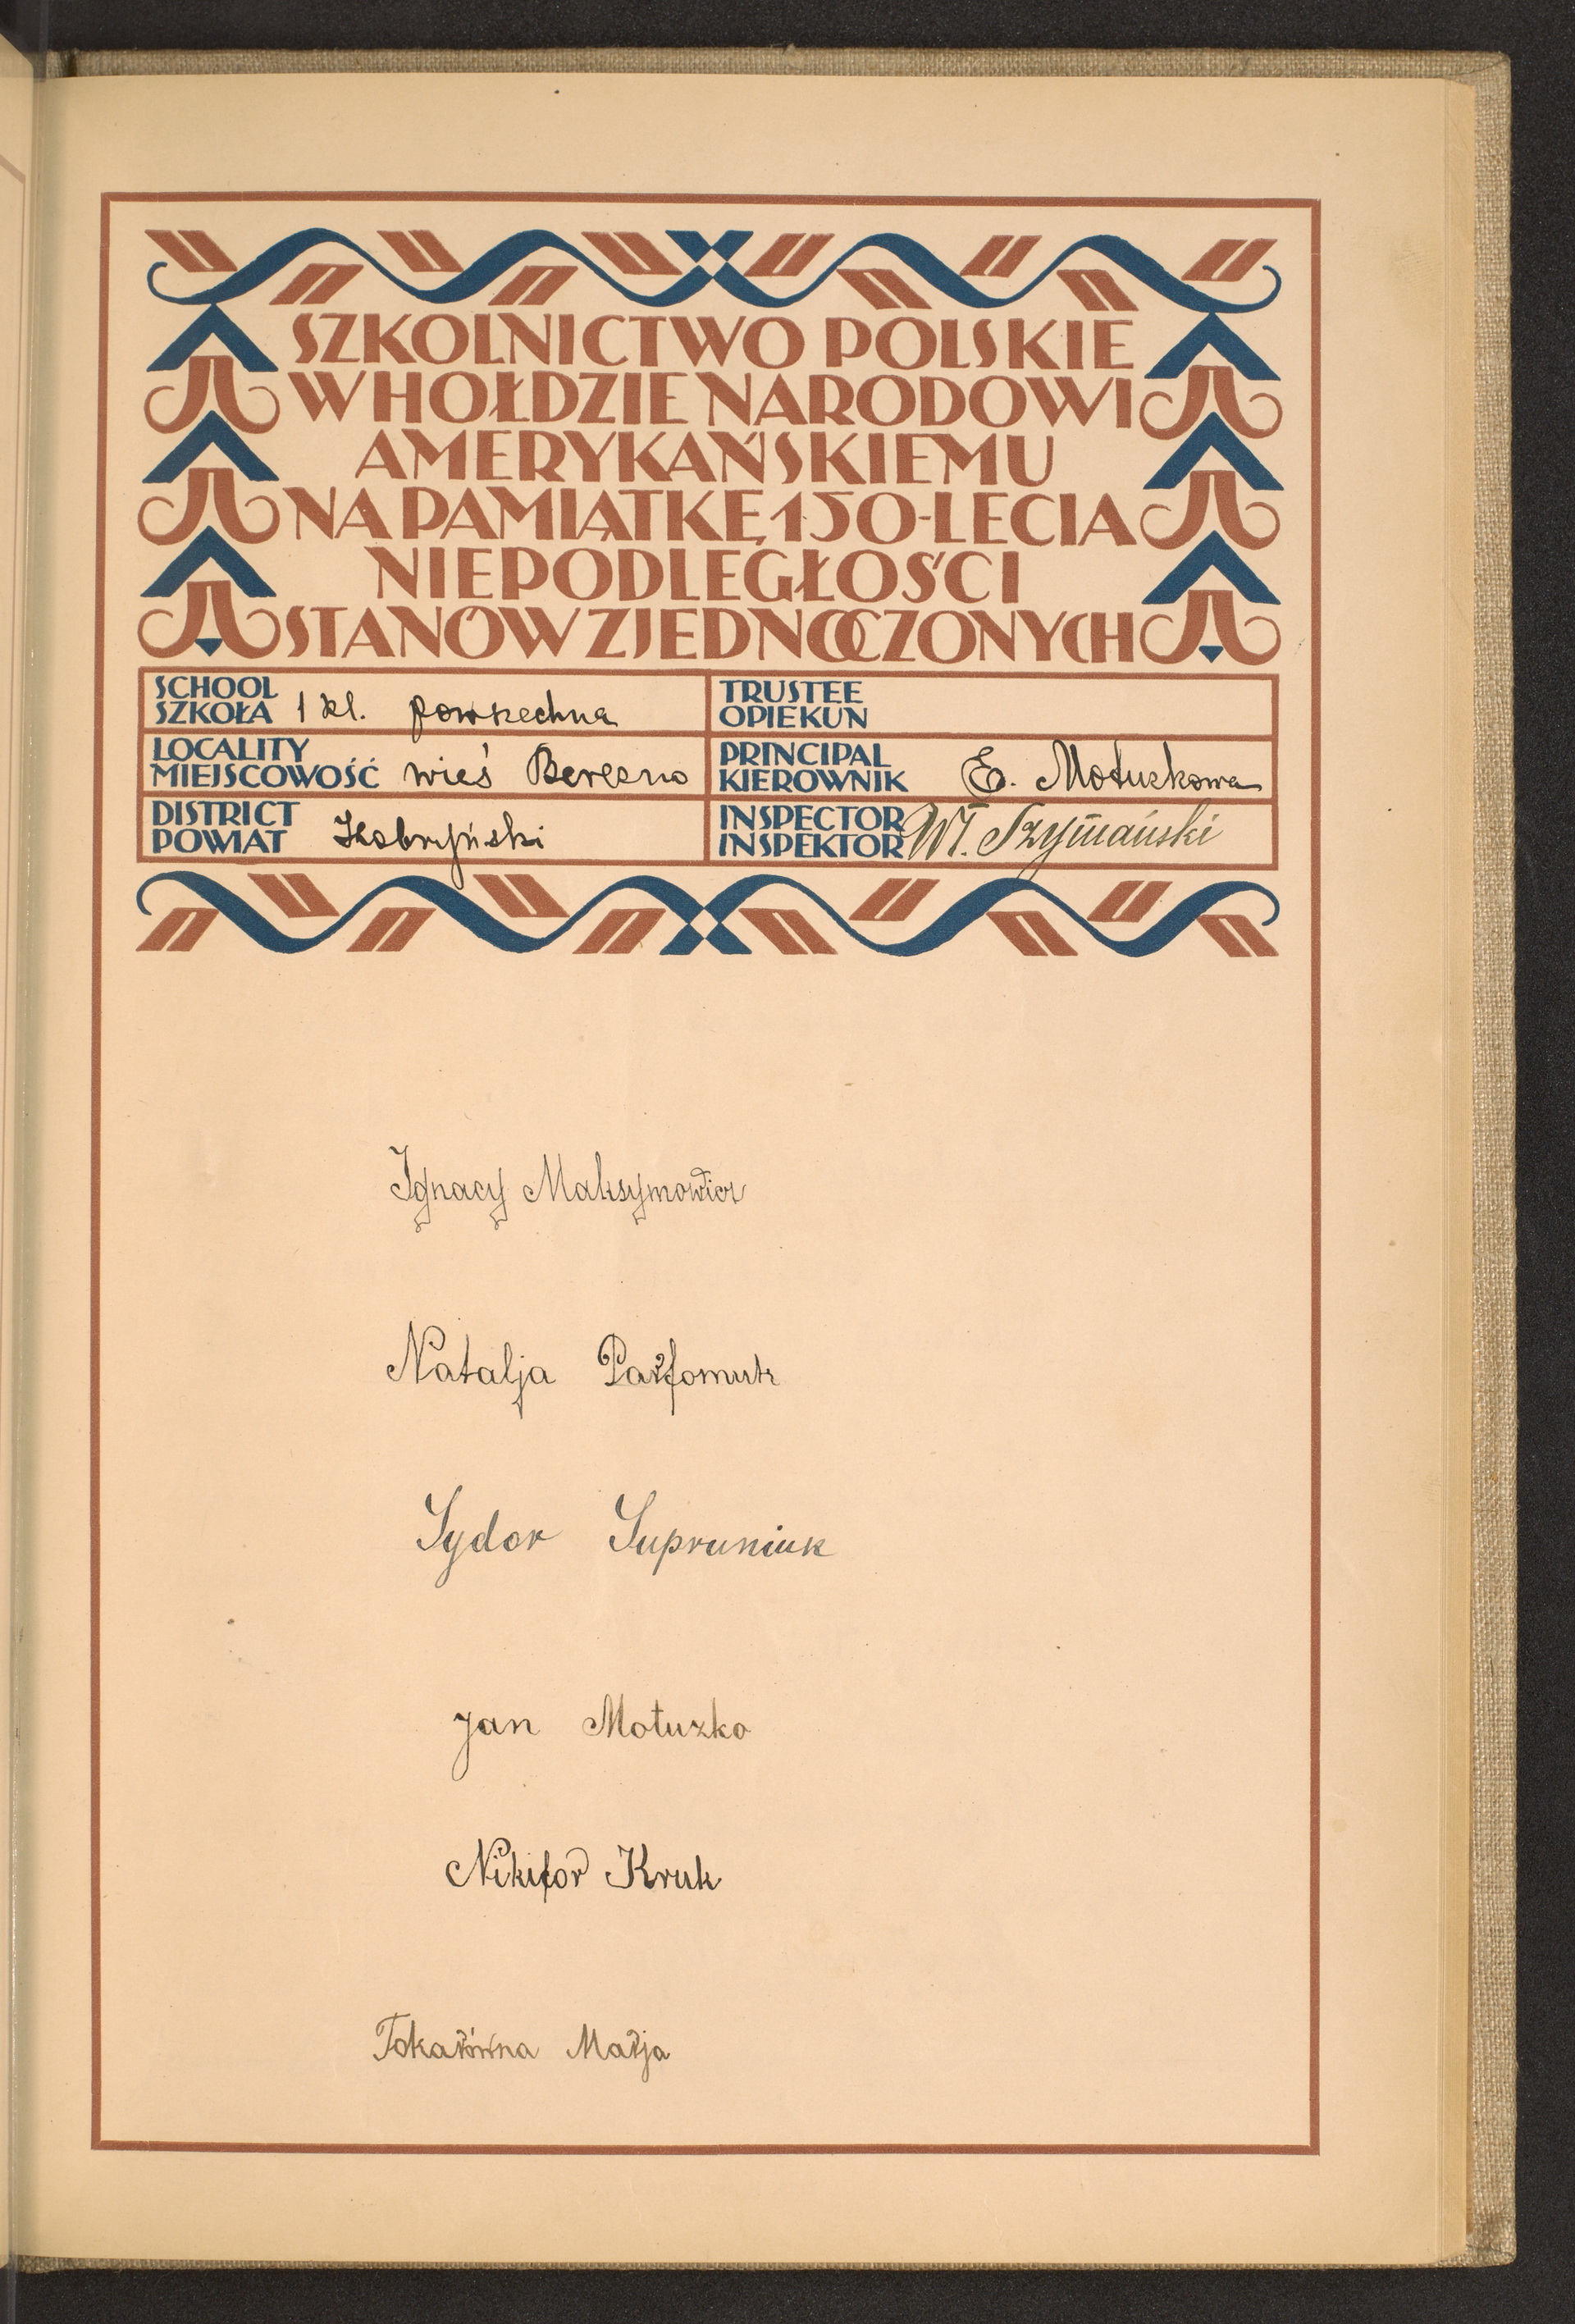 SZKOLNICTWO POLSKIE
W HOŁDZIE NARODOWI
AMERYKAŃSKIEMU
NA PAMIĄTKĘ 150-LECIA
NIEPODLEGŁOŚCI
STANÓW ZJEDNOCZONYCH
SCHOOL
SZKOŁA 1 kl. powszechna
TRUSTEE
OPIEKUN
LOCALITY
MIEJSCOWOŚĆ wieś Berezno
PRINCIPAL
KIEROWNIK E. Motuzkowa
DISTRICT
POWIAT Kobryński
INSPECTOR
INSPEKTOR Wł. Szymański
Ignacy Maksymowicz
Natalja Parfomuk
Sydor Supruniuk
Jan Motuzko
Nikifor Kruk
Tokarówna Marja